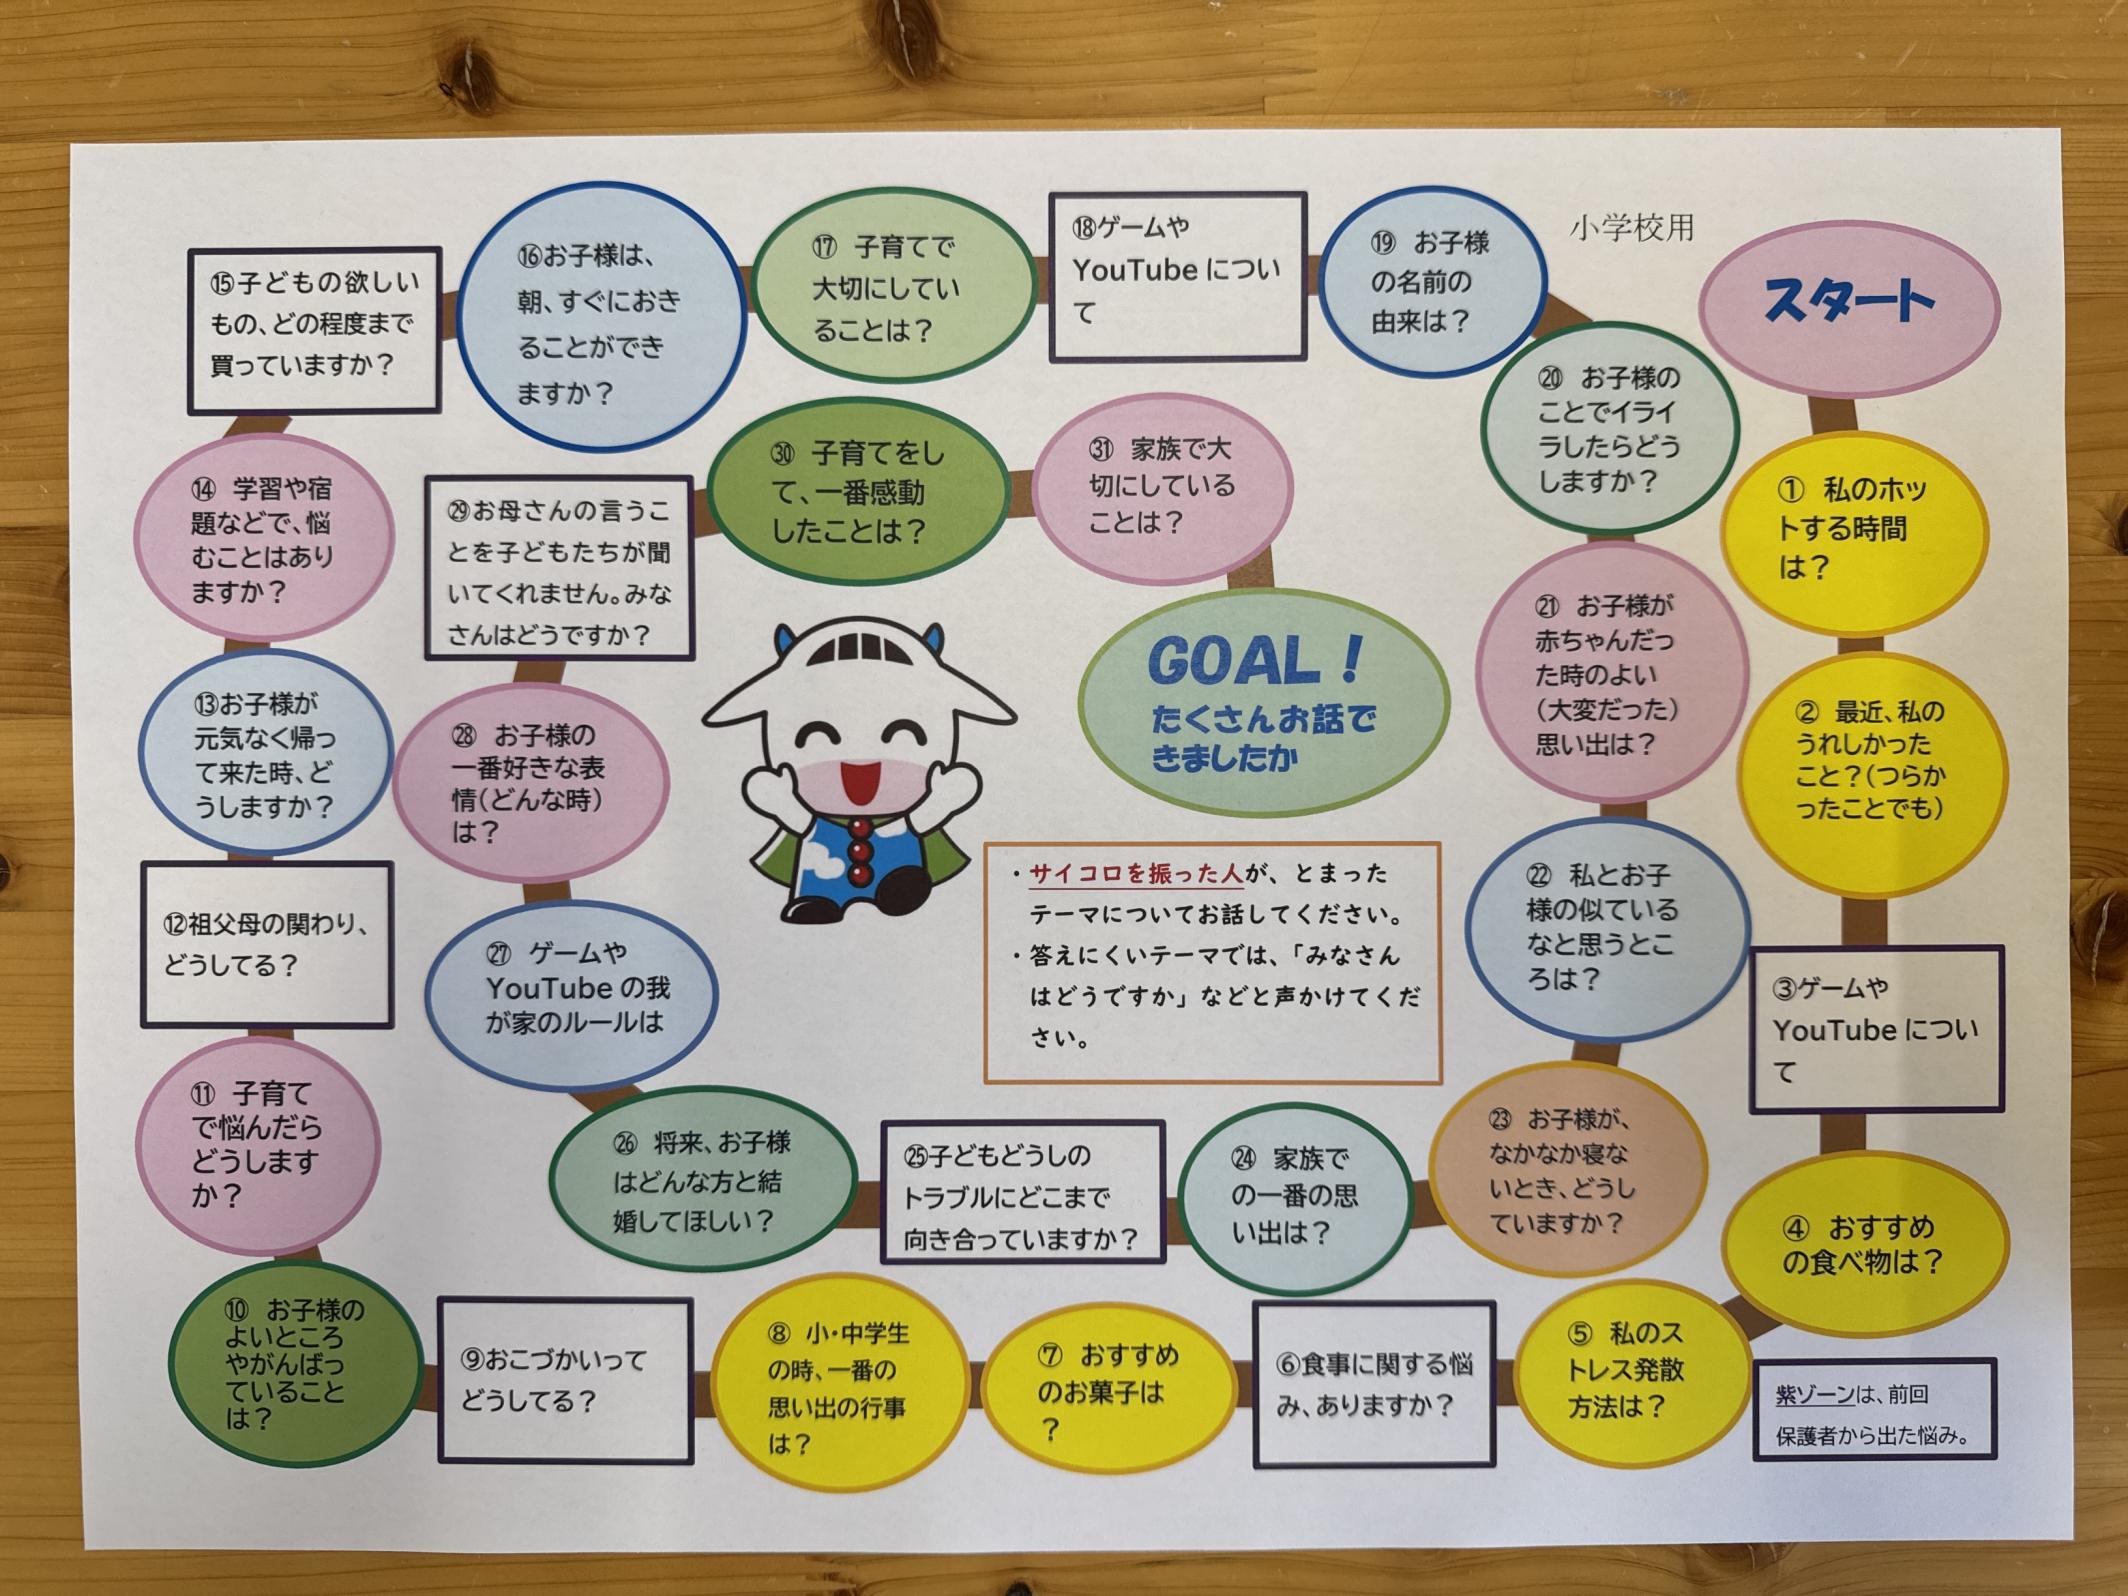 小学校用
スタート
① 私のホッ
トする時間
は？
② 最近、私の
うれしかった
こと？（つらか
ったことでも）
③ゲームや
YouTube につい
て
④ おすすめ
の食べ物は？
⑤ 私のス
トレス発散
方法は？
紫ゾーンは、前回
保護者から出た悩み。
⑥食事に関する悩
み、ありますか？
⑦ おすすめ
のお菓子は
？
⑧ 小・中学生
の時、一番の
思い出の行事
は？
⑨おこづかいって
どうしてる？
⑩ お子様の
よいところ
やがんばっ
ていること
は？
⑪ 子育て
で悩んだら
どうします
か？
⑫祖父母の関わり、
どうしてる？
⑬お子様が
元気なく帰っ
て来た時、ど
うしますか？
⑭ 学習や宿
題などで、悩
むことはあり
ますか？
⑮子どもの欲しい
もの、どの程度まで
買っていますか？
⑯お子様は、
朝、すぐにおき
ることができ
ますか？
⑰ 子育てで
大切にしてい
ることは？
⑱ゲームや
YouTube につい
て
⑲ お子様
の名前の
由来は？
⑳ お子様の
ことでイライ
ラしたらどう
しますか？
㉑ お子様が
赤ちゃんだっ
た時のよい
（大変だった）
思い出は？
㉒ 私とお子
様の似ている
なと思うとこ
ろは？
㉓ お子様が、
なかなか寝な
いとき、どうし
ていますか？
㉔ 家族で
の一番の思
い出は？
㉕子どもどうしの
トラブルにどこまで
向き合っていますか？
㉖ 将来、お子様
はどんな方と結
婚してほしい？
㉗ ゲームや
YouTube の我
が家のルールは
㉘ お子様の
一番好きな表
情（どんな時）
は？
㉙お母さんの言うこ
とを子どもたちが聞
いてくれません。みな
さんはどうですか？
㉚ 子育てをし
て、一番感動
したことは？
㉛ 家族で大
切にしている
ことは？
GOAL！
たくさんお話で
きましたか
・サイコロを振った人が、とまった
テーマについてお話してください。
・答えにくいテーマでは、「みなさん
はどうですか」などと声かけてくだ
さい。